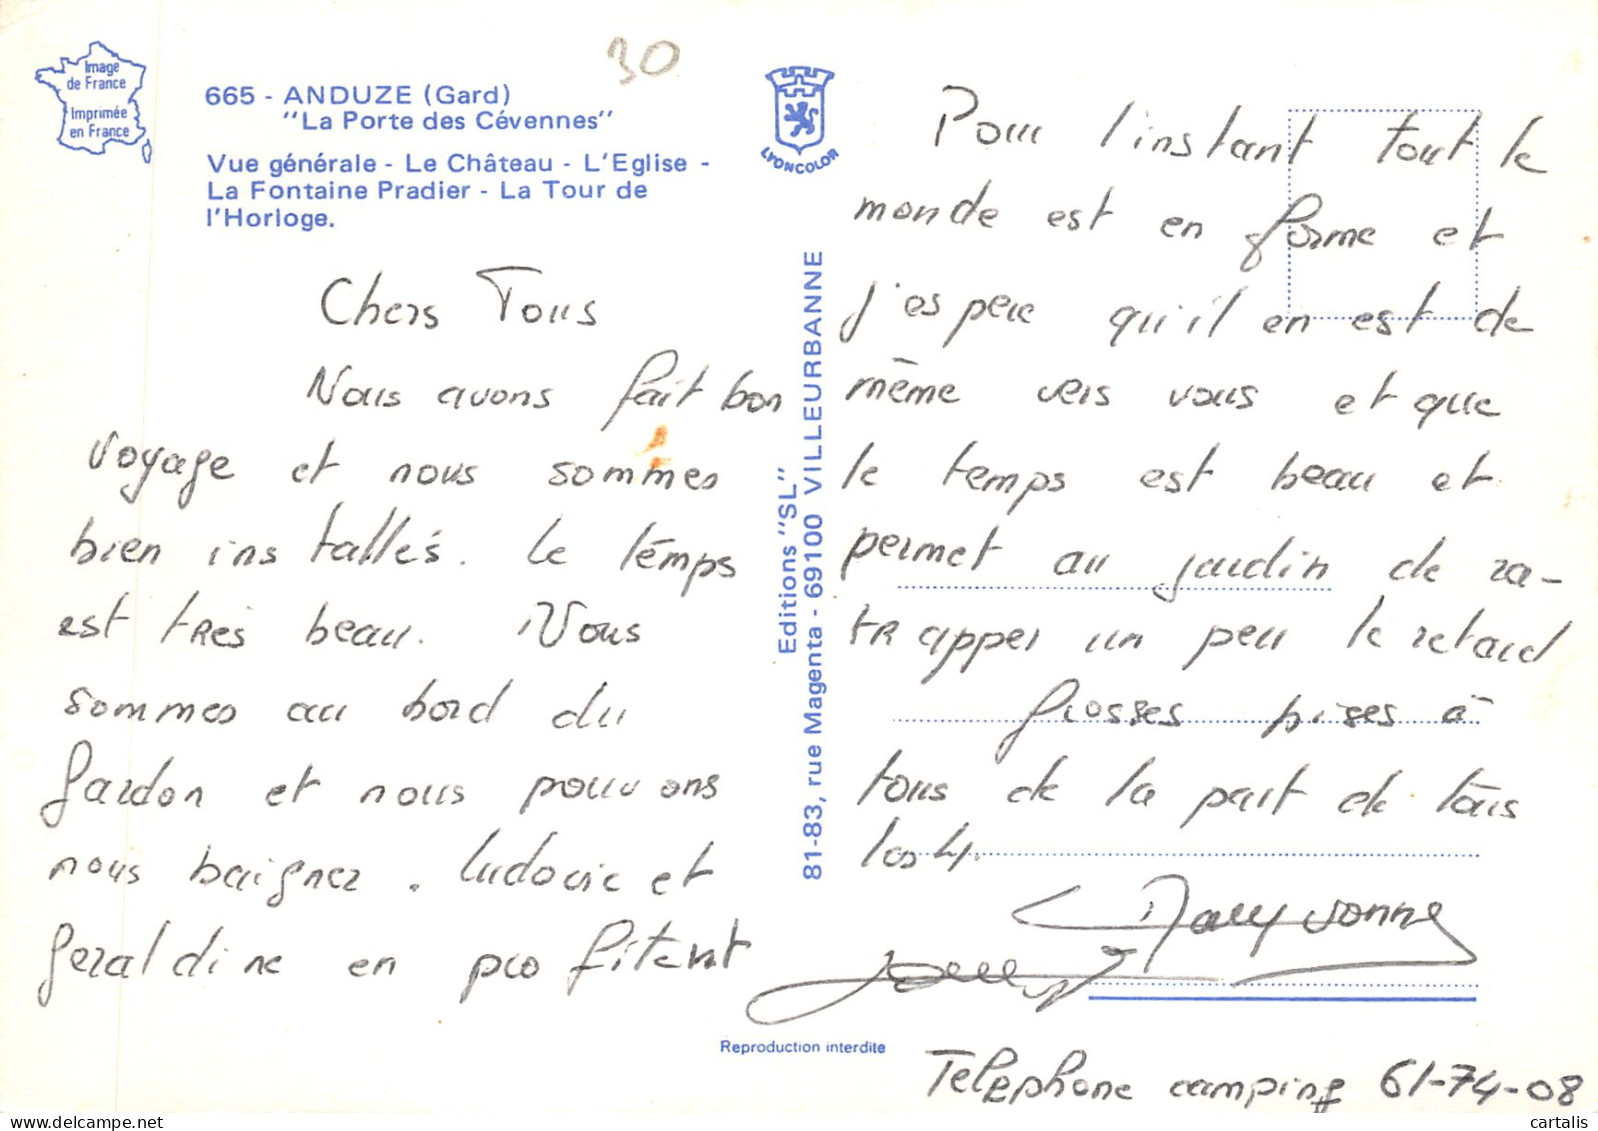 Image
de France
Imprimée
en France
30
665 - ANDUZE (Gard)
"La Porte des Cévennes"
Vue générale - Le Château - L'Eglise -
La Fontaine Pradier - La Tour de
l'Horloge.
LYONCOLOR
Chers Tous
Nous avons fait bon
voyage et nous sommes
bien installés. Le temps
est très beau. Nous
sommes au bord du
gardon et nous pouvons
nous baigner. Ludovic et
Geraldine en profitent
Editions "SL"
81-83, rue Magenta - 69100 VILLEURBANNE
Pour l'instant tout le
monde est en forme et
j'espere qu'il en est de
même vers vous et que
le temps est beau et
permet au jardin de ra-
trapper un peu le retard
Grosses bises à
tous de la part de tous
les 4.
Maryvonne
Reproduction interdite
Telephone camping 61-74-08
cartalis
www.delcampe.net